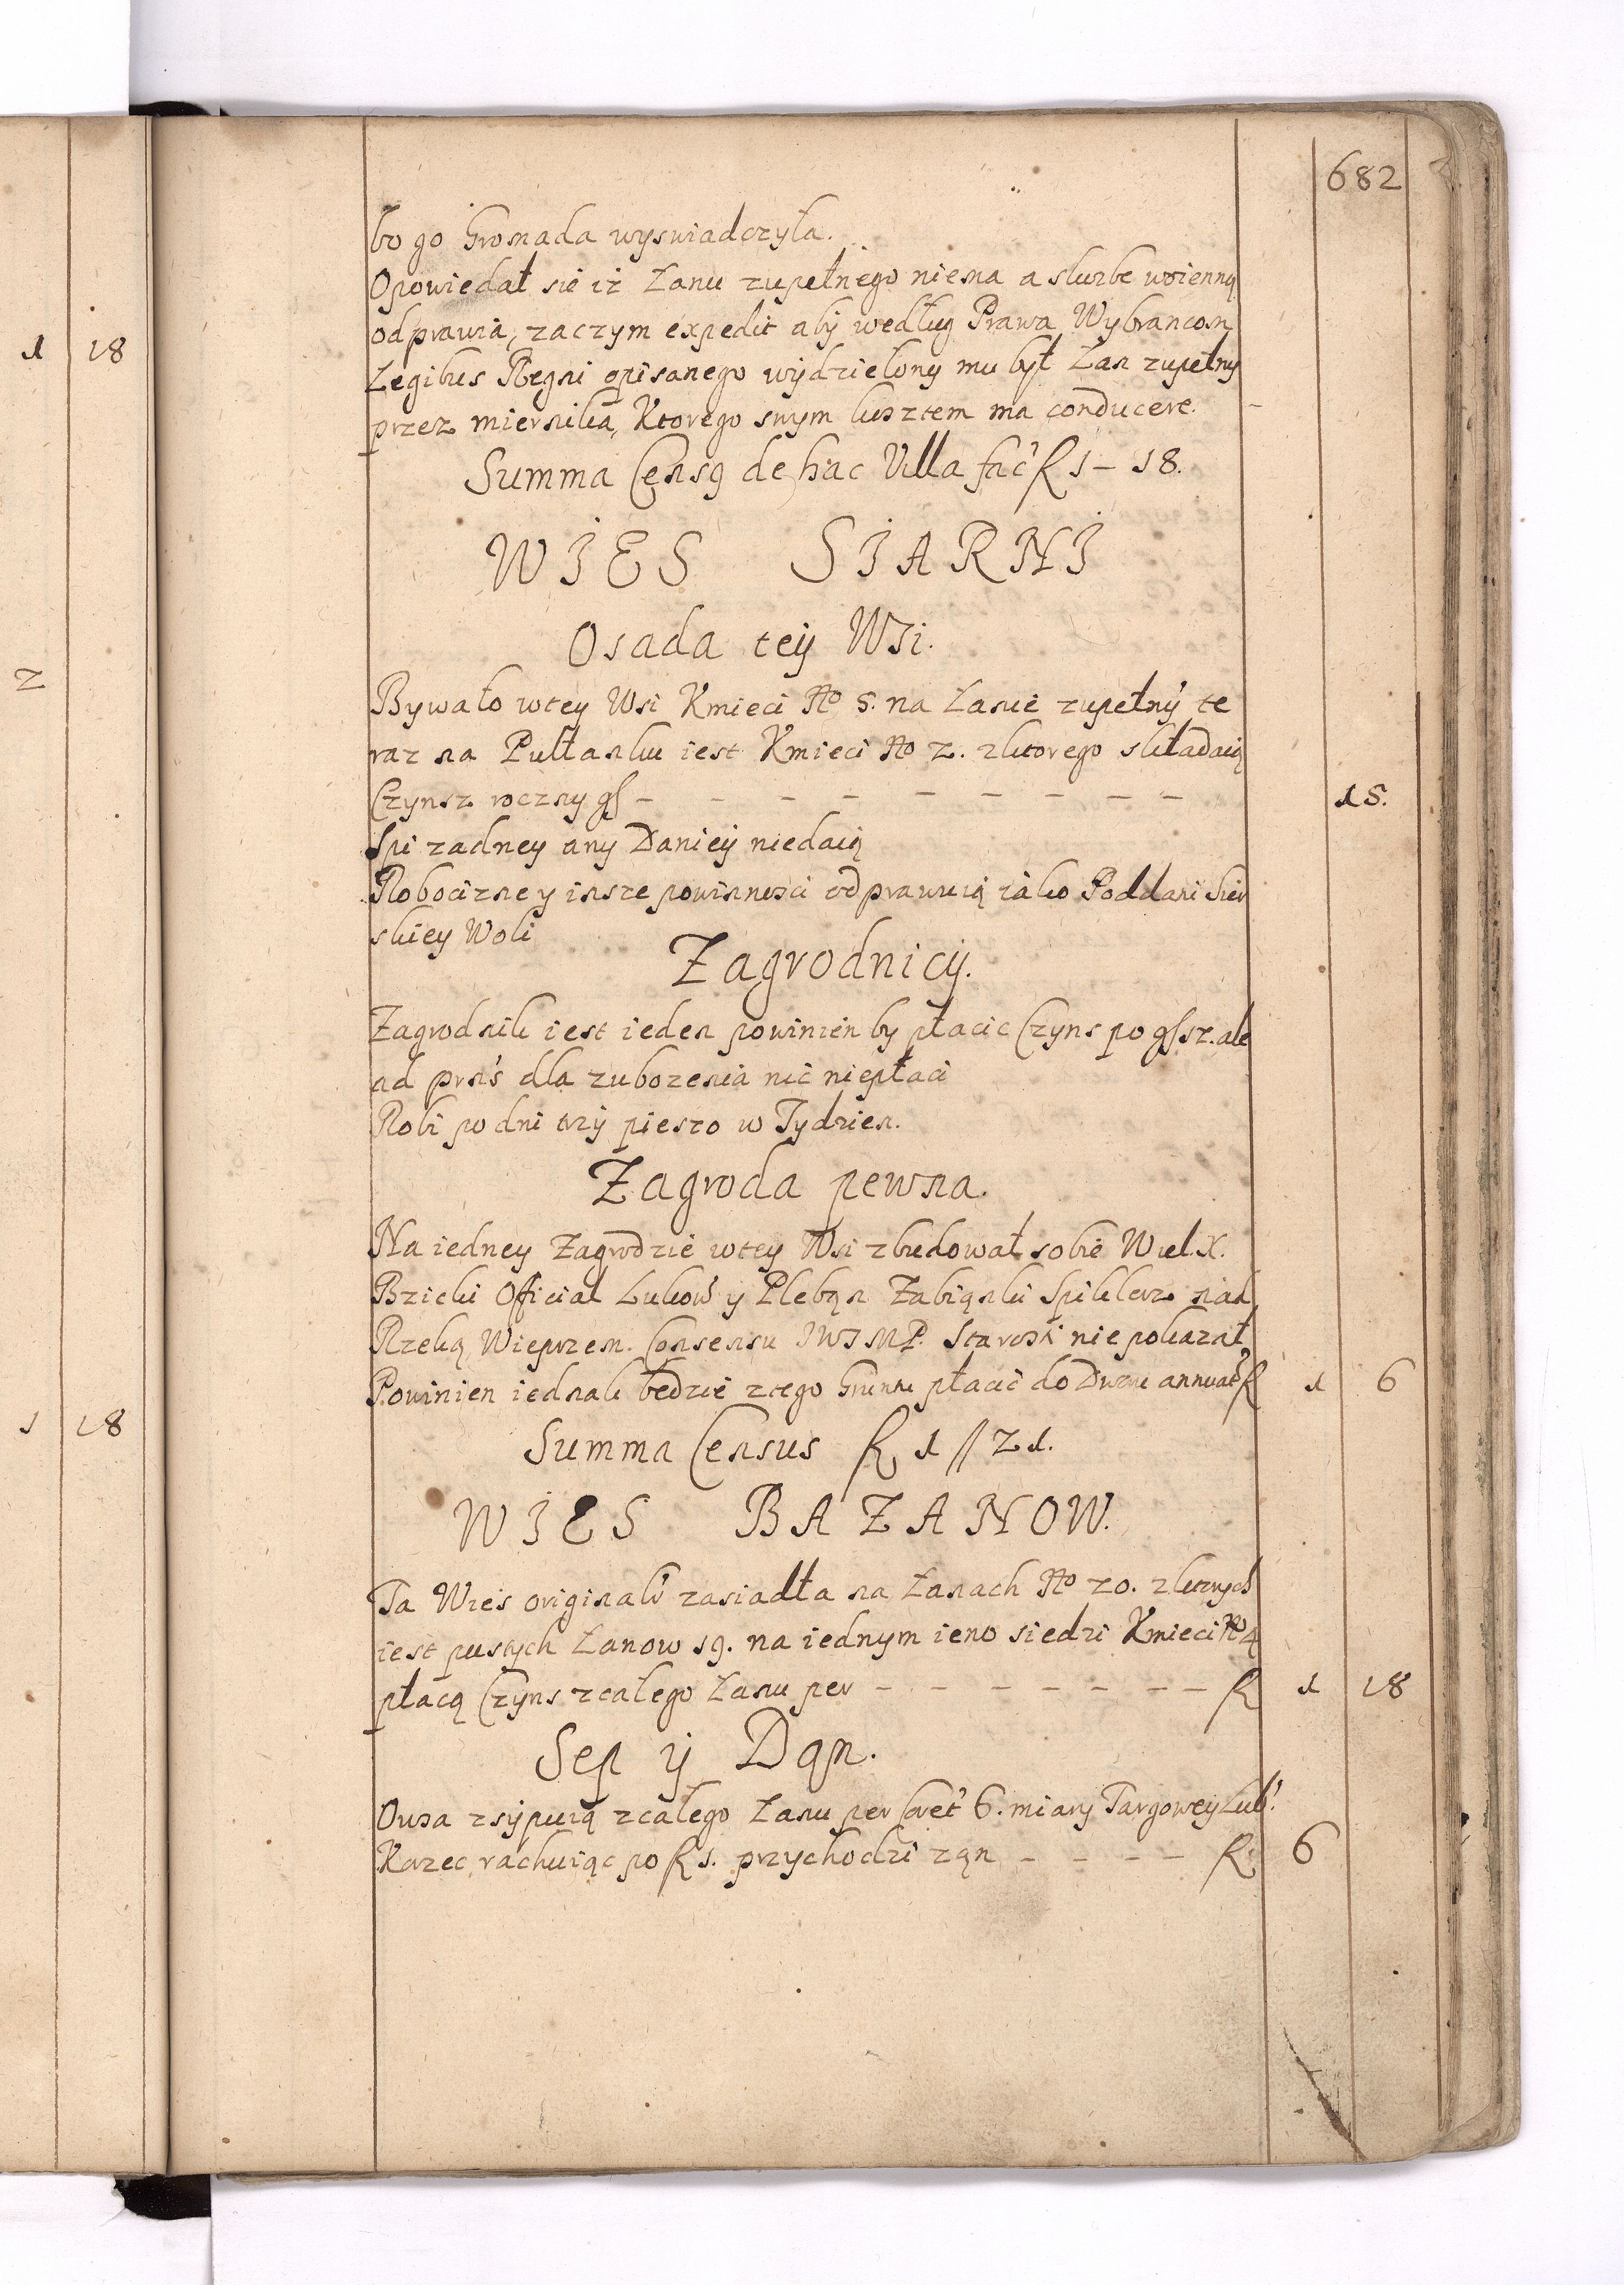 682
bo go Gromada wyswiadczyła.
Opowiedał sie iż Łanu zupełnego niema a służbe woienną
odprawia, zaczym expedit abÿ według Prawa Wybrancom
Legibus Regni opisanego wÿdzielony mu był Łan zupełny
przez miernika, Ktorego swym kosztem ma conducere. -
Summa Censq de hac Villa fac' R 1 - 18.
WIES SIARNI
Osada teÿ Wsi.
Bywało wtey Wsi Kmieci No 5. na Łanie zupełny te
raz na Pułtanku iest Kmieci No 2. zktorego składaią
Czynsz roczny gſ - - - - - - - - - 15.
Spi zadney any Danieÿ niedaią
Robocizne y insze powinnosci odprawuią iako Poddani Sier
skiey Woli
Zagrodnicÿ.
Zagrodnik iest ieden powinien by płacic Czyns po gſ 12. ale
ad prns dla zubozenia nic niepłaci
Robi po dni trzÿ pieszo w Tydzien.
Zagroda pewna.
Na iedney Zagrodzie wtey Wsi zbudował sobie Wiel. X.
Bzicki Official Lukow' y Pleban Zabianki Spiklerz nad
Rzeką Wieprzem. Consensu JWJMP. Starosti nie pokazał
Powinien iednak będzie ztego Gruntu płacić do Dworu annuat' R 1 6
Summa Census R 1 // 21.
WIES BAZANOW.
Ta Wies originali' zasiadła na Łanach No 20. zktorych
iest pustych Łanow 19. na iednym ieno siedzi Kmieci No 4
płacą Czyns zcałego Łanu per - - - - - - - R 1 18
Sep ÿ Dan.
Owsa zsÿpuią zcałego Łanu per Coret' 6. miary Targoweÿ Lub'.
Korzec rachuiąc po R 1. przychodzi zan - - - - R 6
1 18
2
1 18